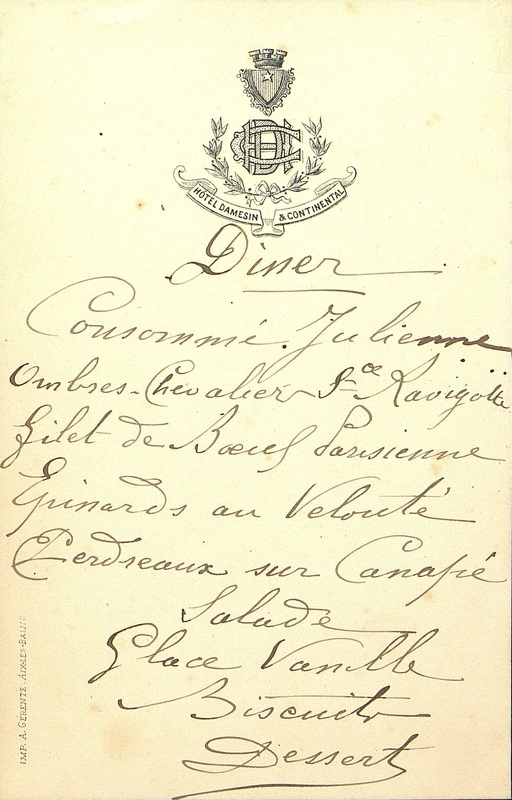 HÔTEL DAMESIN & CONTINENTAL
Diner
Consommé Julienne
Ombres-Chevalier Sce Ravigotte
Filet de Bœuf Parisienne
Epinards au Velouté
Perdreaux sur Canapé
Salade
Glace Vanille
Biscuits
Dessert
IMP. A. GÉRENTE-AIX-LES-BAINS